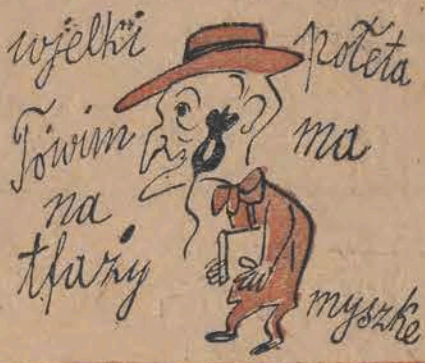 wjelki połeta
Tówim ma
na
tfaży myszke